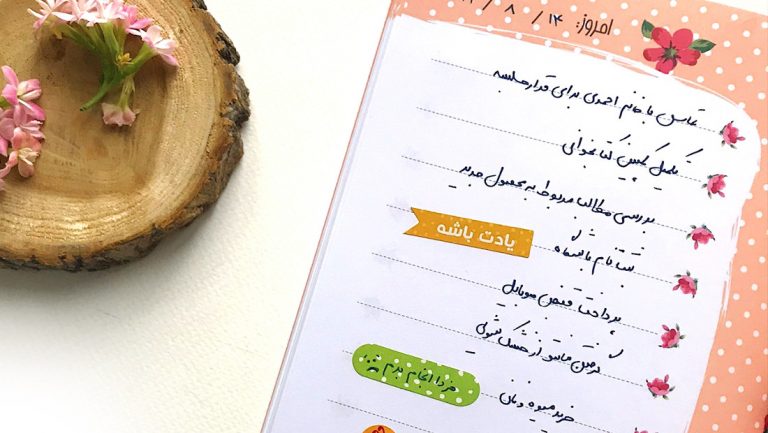 امروز: ۱۴ / ۸ /
تماس با خانم احمدی برای قرار جلسه
تکمیل کمپین کتابخوانی
بررسی مطالب مربوط به محصول جدید
ثبت نام باشگاه
یادت باشه
پرداخت قبض موبایل
گرفتن مانتو از خشکشویی
فردا انجام بدم
خرید میوه و نان